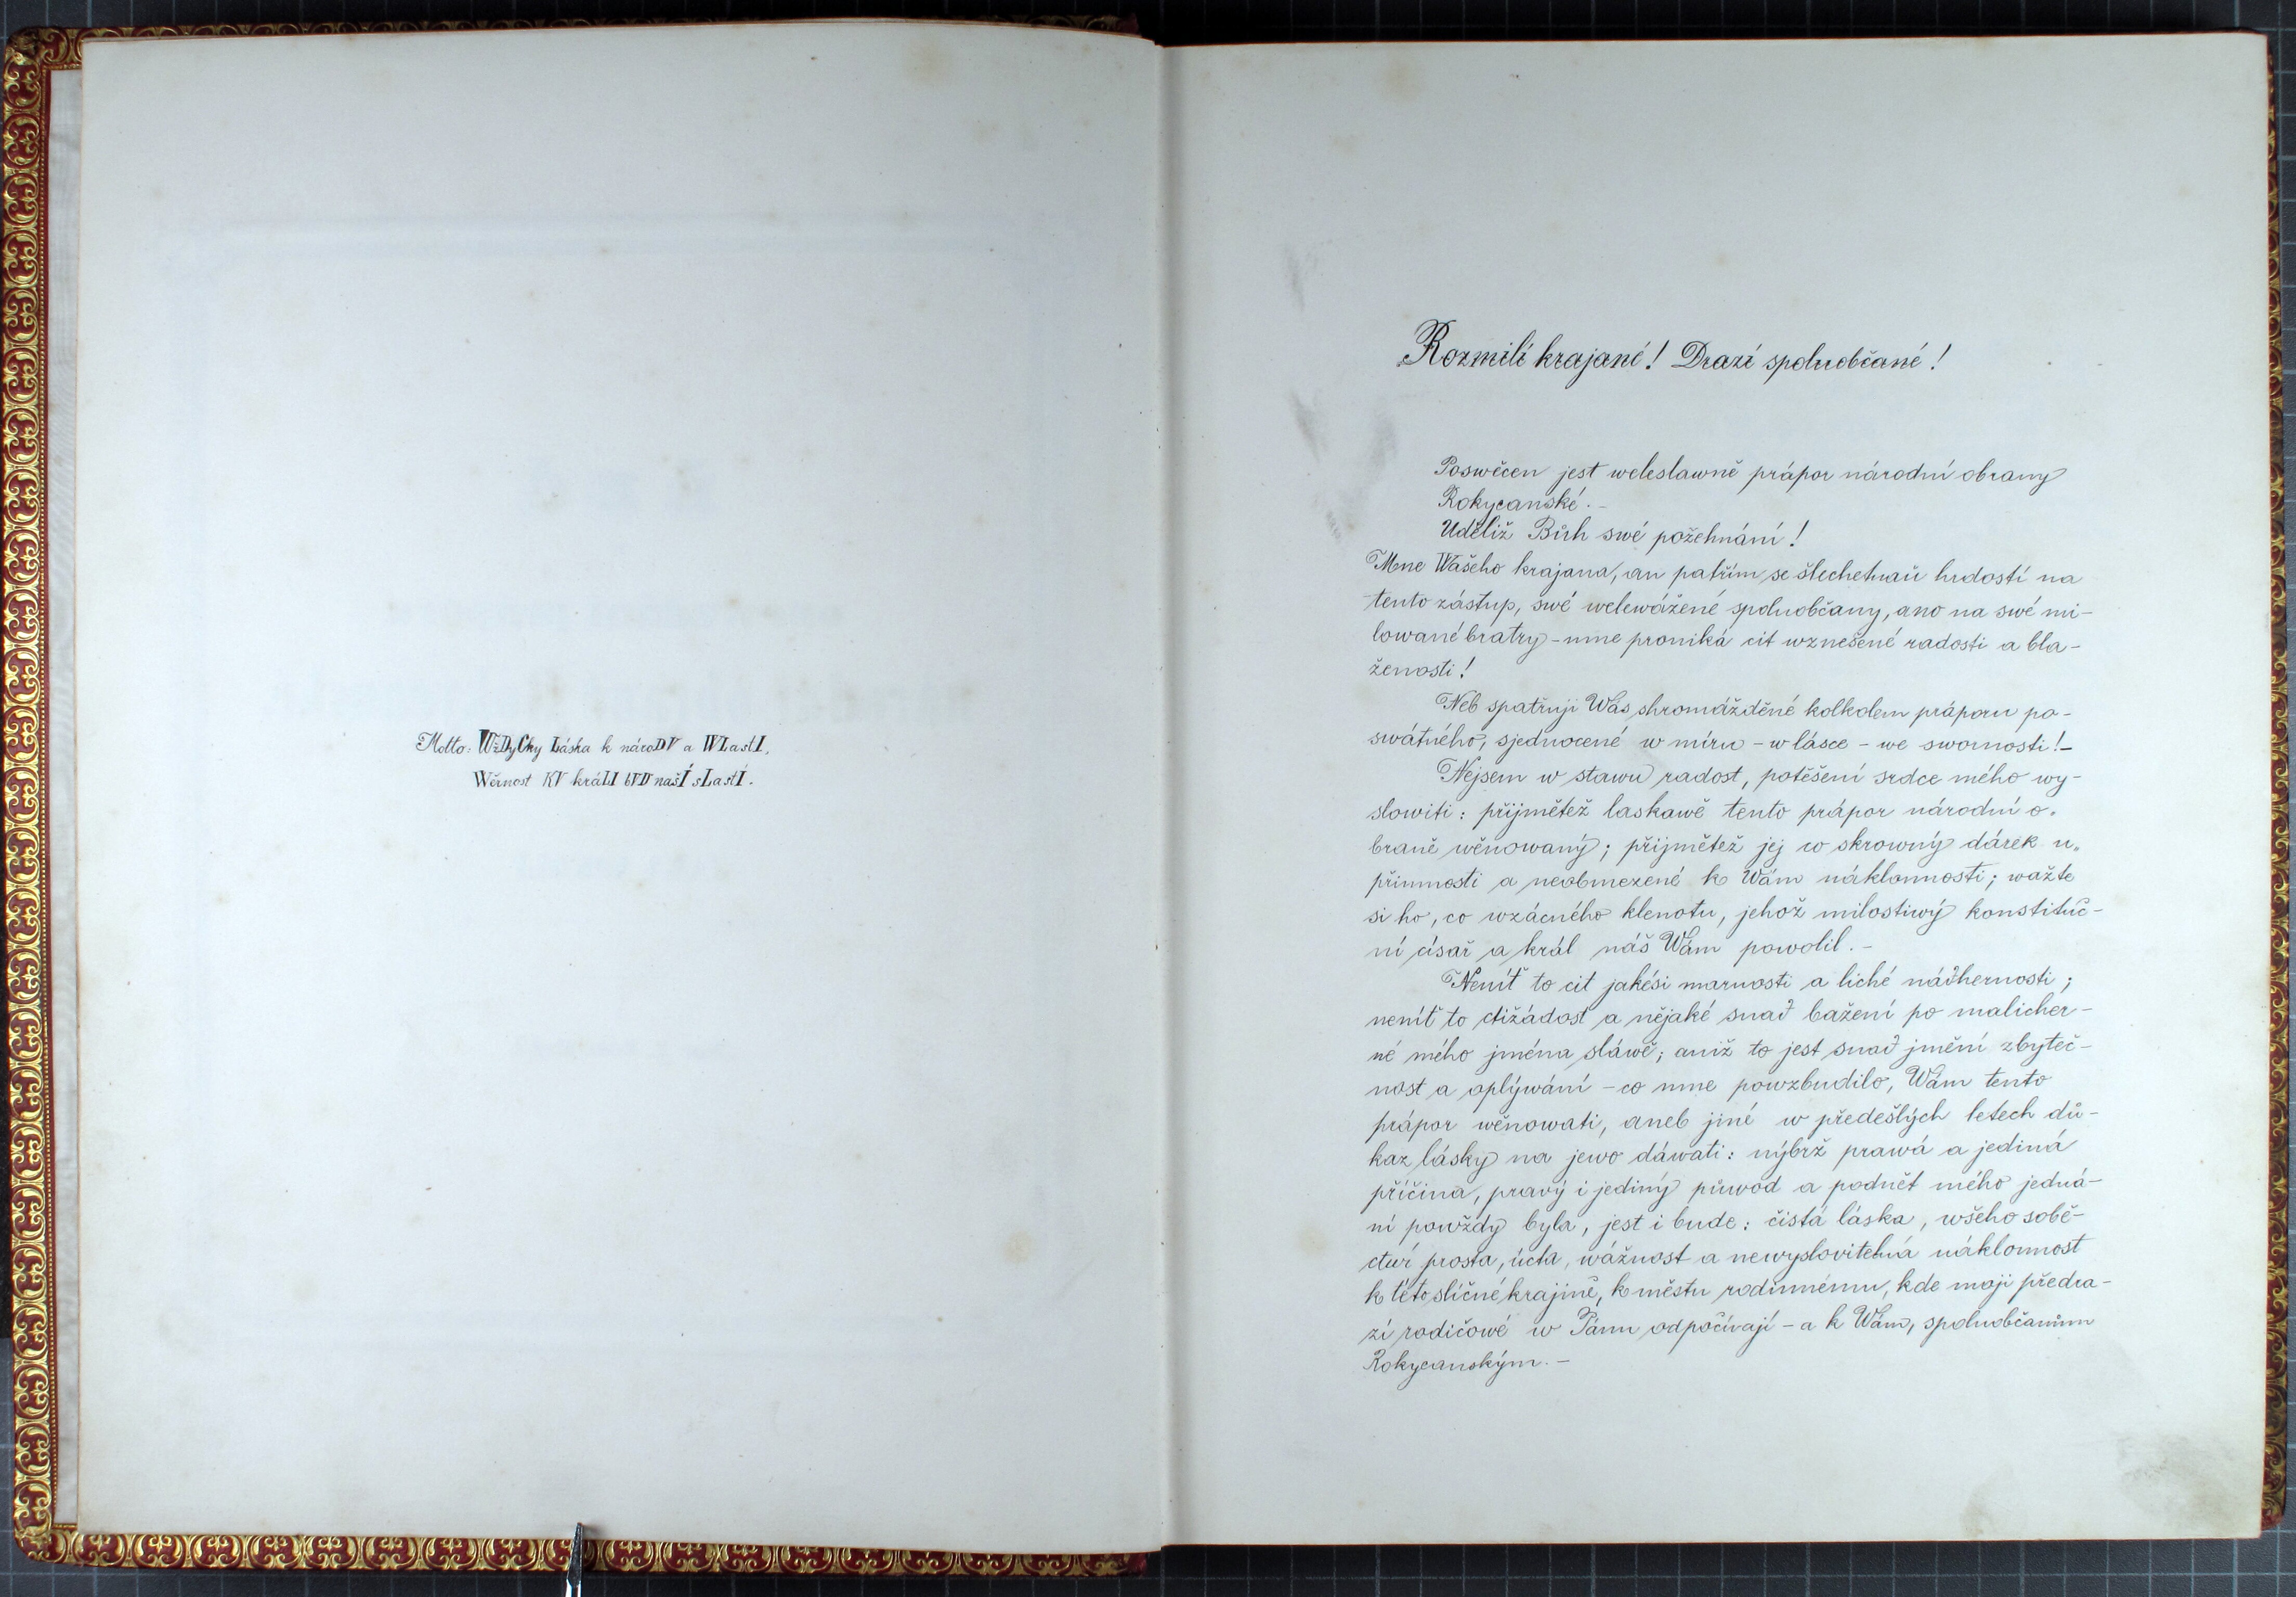 Motto: WžDyCky Láska k národV a WLastI,
Wěrnost KV králI bVD našÍ sLastÍ.
Rozmilí krajané! Drazí spoluobčané!
Poswěcen jest weleslawně prápor národní obrany
Rokycanské. -
Uděliž Bůh swé požehnání!
Mne Wašeho krajana, an patřím se šlechetnaů hrdostí na
tento zástup, swé welewážené spoluobčany, ano na swé mi-
lované bratry - mne proniká cit wznešené radosti a bla-
ženosti!
Neb spatřuji Wás shromážděné kolkolem práporu po-
swátného, sjednocené w míru - w lásce - we swornosti! -
Nejsem w stawu radost, potěšení srdce mého wy-
slowiti: přijmětež laskawě tento prápor národní o-
braně wěnowaný; přijmětež jej co skrowný dárek u-
přímnosti a neobmezené k Wám náklonnosti; važte
si ho, co wzácného klenotu, jehož milostiwý konstituč-
ní císař a král náš Wám powolil. -
Neníť to cit jakési marnosti a liché nádhernosti;
neníť to ctižádost a nějaké snad bažení po malicher-
né mého jména sláwě; aniž to jest snad jmění zbyteč-
nost a oplýwání - co mne powzbudilo, Wám tento
prápor wěnowati, aneb jiné w předešlých letech dů-
kaz lásky na jewo dáwati: nýbrž prawá a jediná
příčina, pravý i jediný půwod a podnět mého jedná-
ní powždy byla, jest i bude: čistá láska, wšeho sobě-
ctwí prosta, úcta, wážnost a newyslovitelná náklonnost
k této sličné krajině, k městu rodinnému, kde moji předra-
zí rodičowé w Pánu odpočívají - a k Wám, spoluobčanům
Rokycanským. -